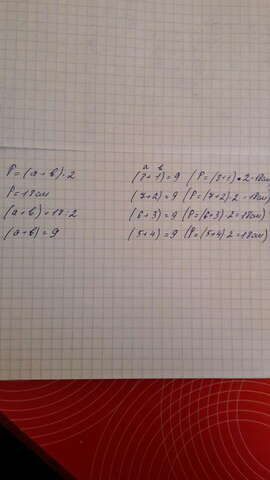 P = (a + b) · 2
P = 18 см
(a + b) = 18 : 2
(a + b) = 9
a b
(8 + 1) = 9 (P = (8 + 1) · 2 = 18 см
(7 + 2) = 9 (P = (7 + 2) · 2 = 18 см)
(6 + 3) = 9 (P = (6 + 3) · 2 = 18 см)
(5 + 4) = 9 (P = (5 + 4) · 2 = 18 см)